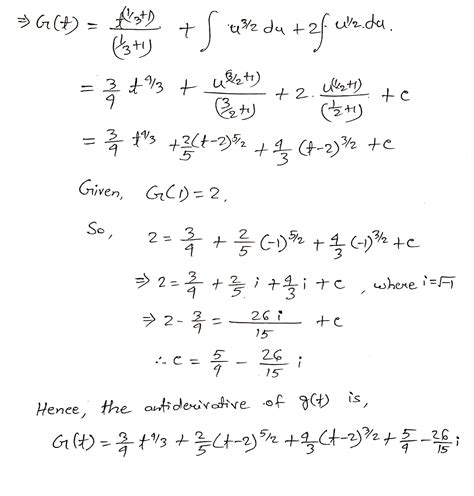 ⇒ G(t) = t^(1/3+1) / (1/3+1) + ∫ u^3/2 du + 2∫ u^1/2 du.
= 3/4 t^4/3 + u^(3/2+1) / (3/2+1) + 2 · u^(1/2+1) / (1/2+1) + c
= 3/4 t^4/3 + 2/5 (t-2)^5/2 + 4/3 (t-2)^3/2 + c
Given, G(1) = 2.
So, 2 = 3/4 + 2/5 (-1)^5/2 + 4/3 (-1)^3/2 + c
⇒ 2 = 3/4 + 2/5 i + 4/3 i + c , where i = √-1
⇒ 2 - 3/4 = 26 i / 15 + c
∴ c = 5/4 - 26/15 i
Hence, the antiderivative of g(t) is,
G(t) = 3/4 t^4/3 + 2/5 (t-2)^5/2 + 4/3 (t-2)^3/2 + 5/4 - 26/15 i